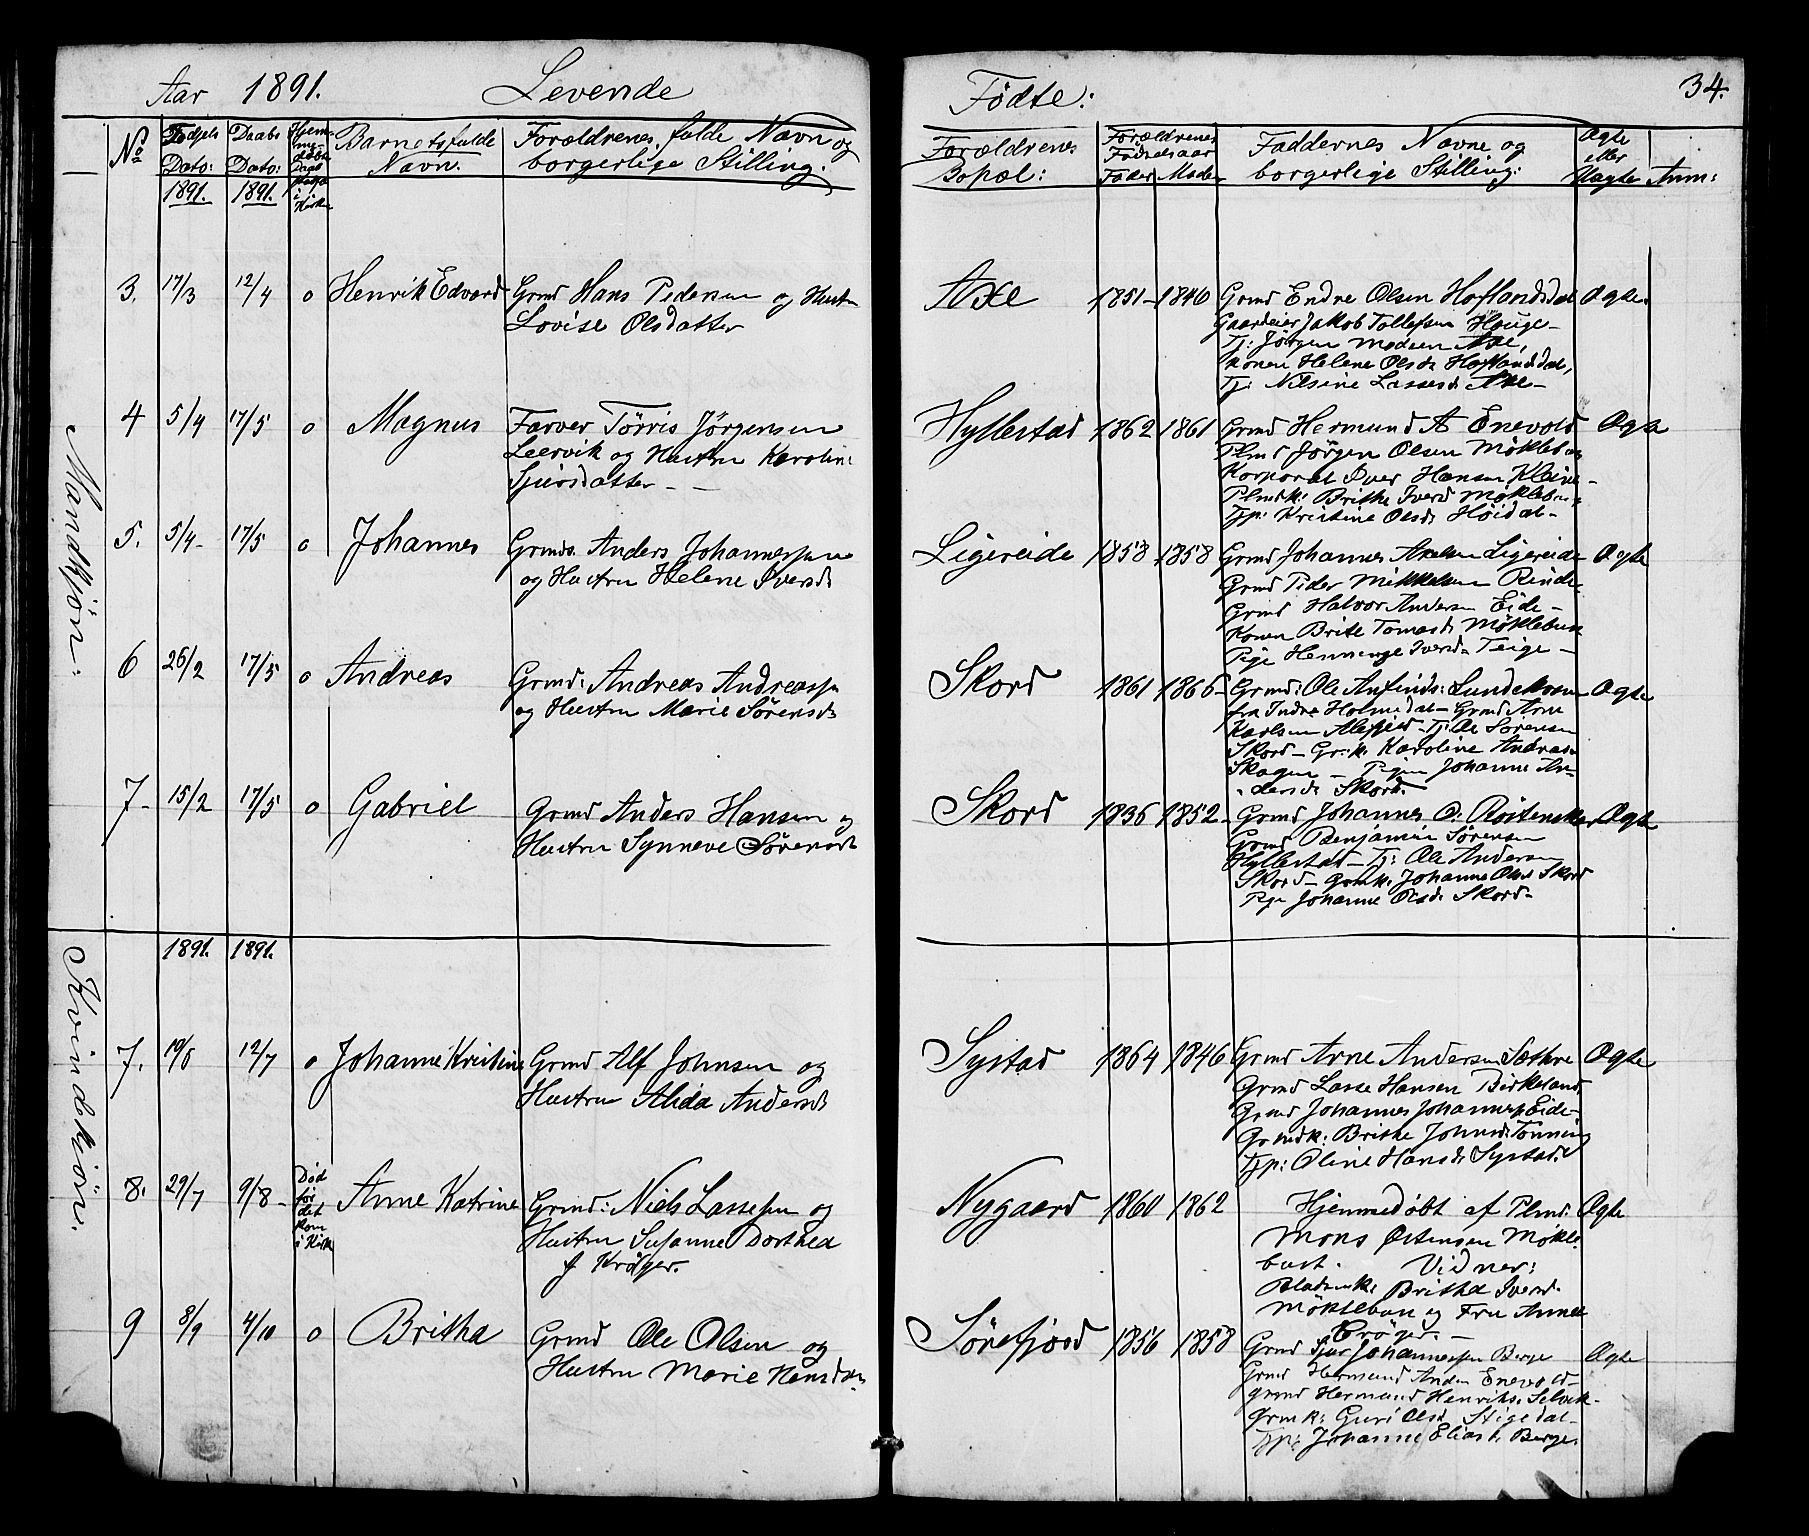 Aar 1891. Levende
Fødte: 34.
No
Fødsels Dato: 1891.
Daabs Dato: 1891.
Barnets fulde Navn.
Forældrenes fulde Navn og borgerlige Stilling:
Forældrenes Bopæl:
Forældrenes Fødselsaar Fader Moder
Faddernes Navne og borgerlige Stilling:
Ægte eller Uægte
Anm:
Mandkjøn:
3. 17/3 12/4 o Henrik Edvard Grmd Hans Pedersen og Hustr
Lovise Olsdatter
Axe 1851 - 1846 Grmd Endre Olsen Hoflandsdal Ægte
Gaardeier Jakob Tollefsen Houge -
Tj: Jörgen Madsen Axe,
Konen Helene Olsd: Hoflandsdal,
Tj: Nilsine Lassesd: Axe -
4 5/4 17/5 o Magnus Farver Törris Jörgensen
Leervik og Hustru Karoline
Sjursdatter - -
Hyllestad 1862 1861 Grmd Hermund A Enevold Ægte
Plmd Jörgen Olsen Möklebu
Korporal Iver Hansen Kleive -
Plmdk: Brithe Iversd Möklebu
Tjp: Kristine Olsd: Höidal -
5. 5/4 - 17/5 o Johannes Grmds. Anders Johannessen
og Hustru Helene Iversd:
Ligereide 1858 1858 Grmd Johannes Axelsen Ligereide Ægte
Grmd Peder Mikkelsen Rinde
Grmd Halvor Andersen Eide -
Konen Brite Tomasd: Möklebust
Pige Henninge Iversd - Teige -
6 26/2 17/5 o Andreas Grmd: Andreas Andreass:
og Hustru Marie Sörensd:
Skord 1861 1866 - Grmd: Ole Anfinds: Lundekvam Ægte
fra Indre Holmedal - Grmd Arne
Karlsen Alefjeld - Tj: Ole Sörensen
Skord - Gr: k: Karoline Andreas
Skagen - Pigen Johanne An-
dersd: Skord.
7 - 15/2 17/5 o Gabriel Grmd Anders Hansen og
Hustru Synneve Sörensd:
Skord 1836 1852 - Grmd Johannes O. Röitenskar Ægte
Grmd Benjamin Sörensen
Hyllestad - Tj: Ole Andersen
Skord - Grmk: Johanne Olsd Skord
Pige Johanne Olsd: Skord -
1891. 1891.
Kvindekjön.
7. 12/7 o Johanne Kristine Grmd Alf Johnsen og
Hustru Alida Andersd:
Systad 1864 1846 Grmd Arne Andersen Sæthre Ægte
Grmd Lasse Hansen Birkeland
Grmd Johannes Johanness: Eide -
Grmdk: Brithe Johnsd: Tonning
Tjp: Oline Hansd: Systad.
8. 29/7 9/8 - Död för det kom i Kirke Anne Katrine Grmd: Niels Lassesen og
Hustru Susanne Dorthea
f. Kröger.
Nygaard 1860 1862 Hjemmedöbt af Plmd. Ægte
Mons Østensen Mökle-
bust. Vidner:
Brithe Iversd.
Möklebu og Fru Anna
Kröger. -
9 8/9 4/10 o Britha Grmd Ole Olsen og
Hustru Marie Hansdr.
Sörefjord 1856 1858 Grmd Sjur Johannessen Berge Ægte
Grmd Hermund Anders Enevold -
Grmd Hermund Henriks: Selvik -
Grmk: Guri Olsd Stigedal -
Tjp: Johanne Eliasd: Berge.